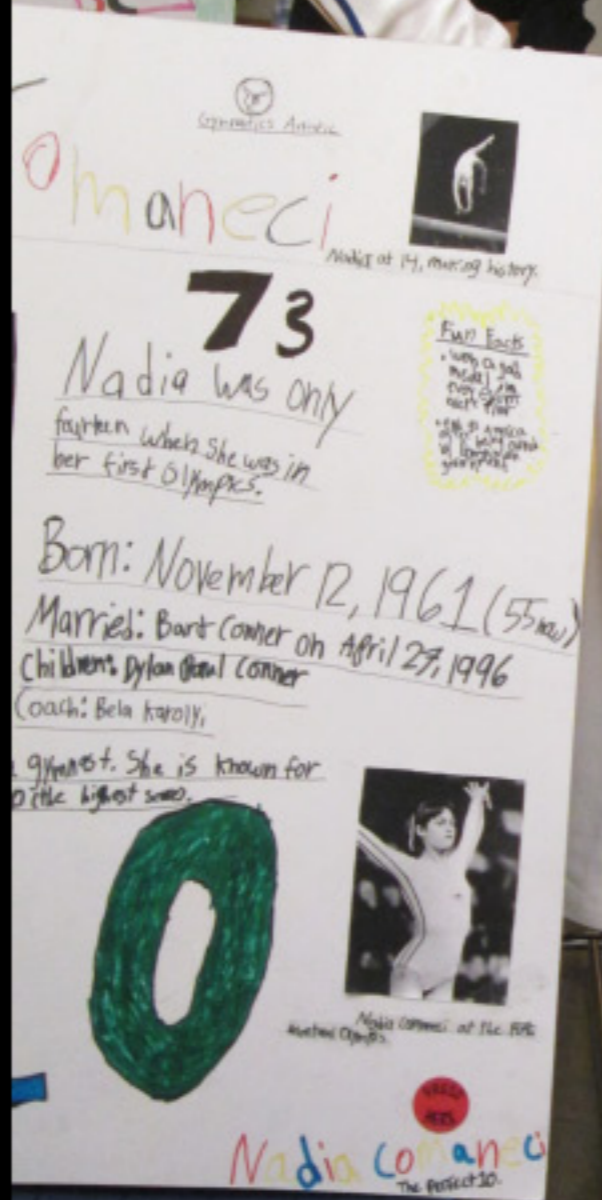 Gymnastics Artistic
Comaneci
Nadia at 14, making history.
73
Nadia was only
fourteen when she was in
her first Olympics.
Fun Facts
Born: November 12, 1961 (55 now)
Married: Bart Conner on April 27, 1996
Children: Dylan Paul Conner
Coach: Bela Karolyi
gymnest. She is known for
the highest
0
Nadia Comaneci at the 1976
Montreal Olympics.
PRESS
HERE
Nadia Comaneci
The Perfect 10.